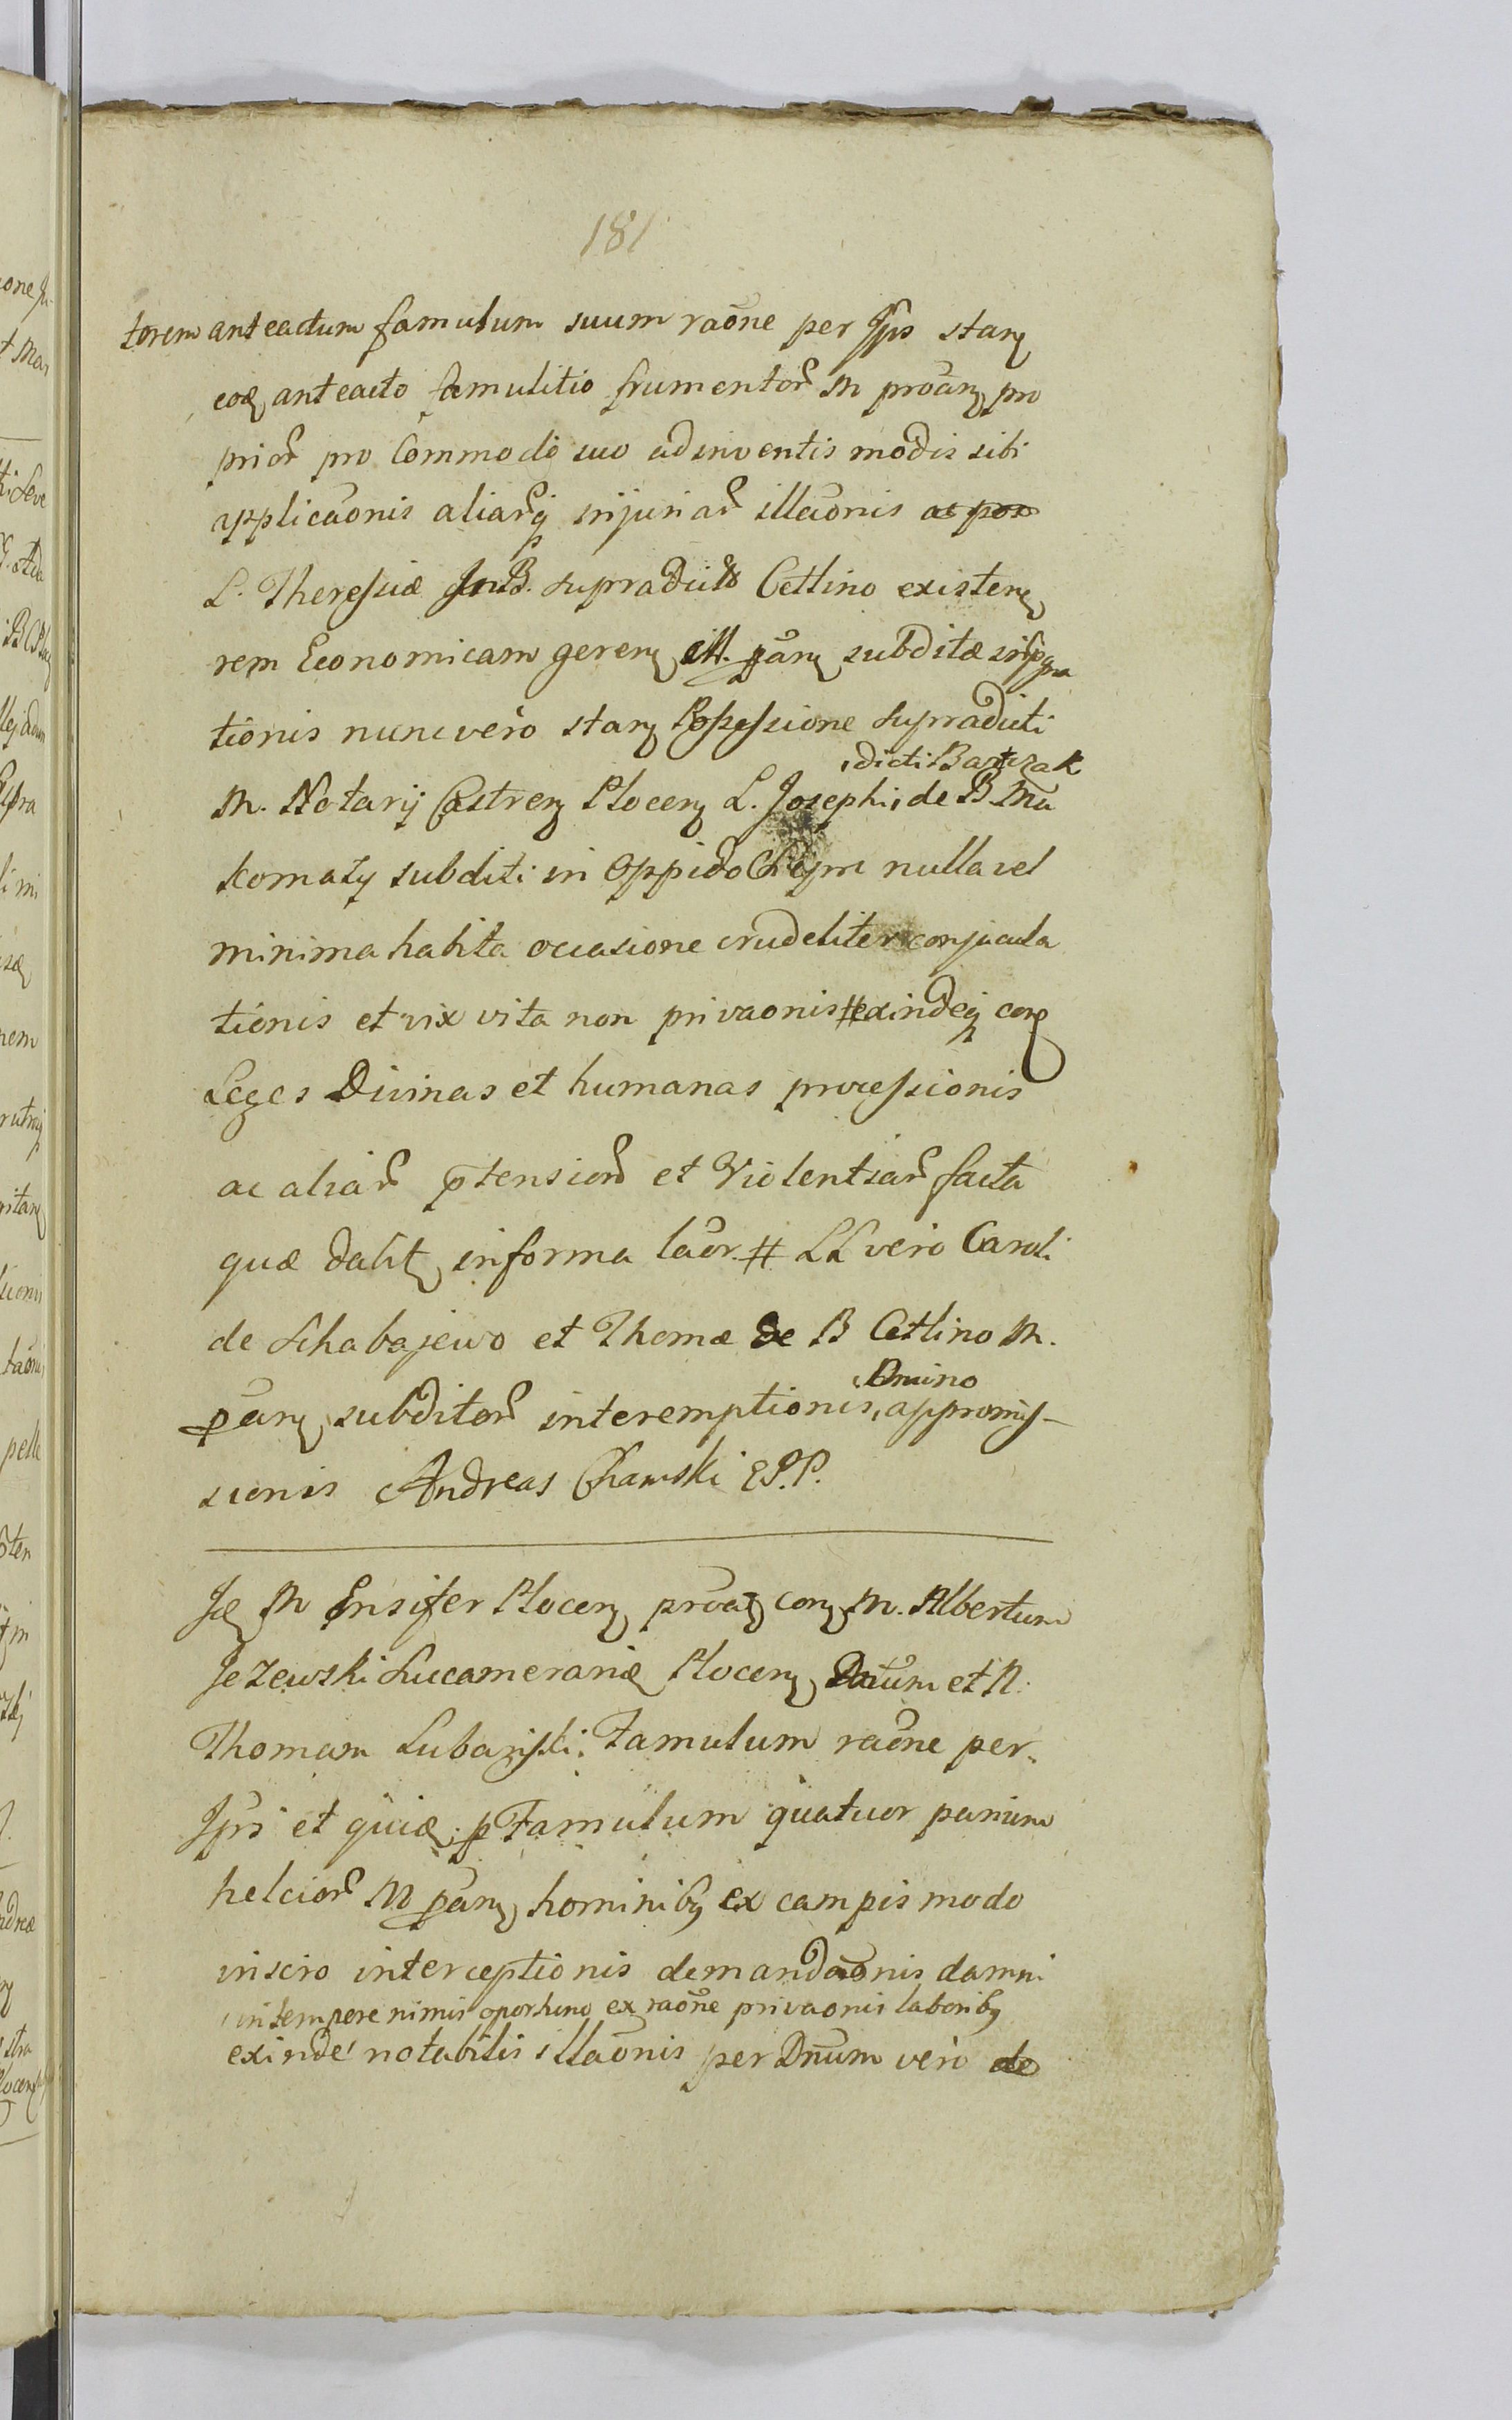 181
torem anteactum famulum suum raōne per Ips stan
eoq anteacto famulitio frumentor M proān pro
prior pro Commodo suo adinventis modis sibi
applicaōnis aliarq injuriar illaōnis ac per
L. Theresiæ In B. supradicto Cetlino existen
rem Economicam geren ill. pān subditæ impgna
tionis nunc vero stan Possessione supradicti
dicti Bartczak
M. Notarij Castren Plocen L. Josephi, de B
subditi in Oppido nulla vel
minima habita occasione crudeliter conjacula
tionis et vix vita non privaōnis # exindeq con
Leges Divinas et humanas processionis
ac aliar ptension et Violentiar facta
quæ dabit in forma laōr. # LL vero Caroli
de Schabajewo et Thomæ de B Cetlino M.
Omnino
pān subditor interemptionis, appromis-
sionis Andreas Chamski E P.P.
Id M Ensifer Plocen proāt con M. Albertum
Jezewski Succamerariæ Plocen Dnum et N.
Thomam Lubanski Famulum raōne per
Ips et quid p Famulum quatuor parium
helcior M pān hominib ex campis modo
inscio interceptionis demandaōnis damni
in tempore nimis oportuno ex raōne privaonis laborib
exinde notabilis illaōnis per Dnum vero de